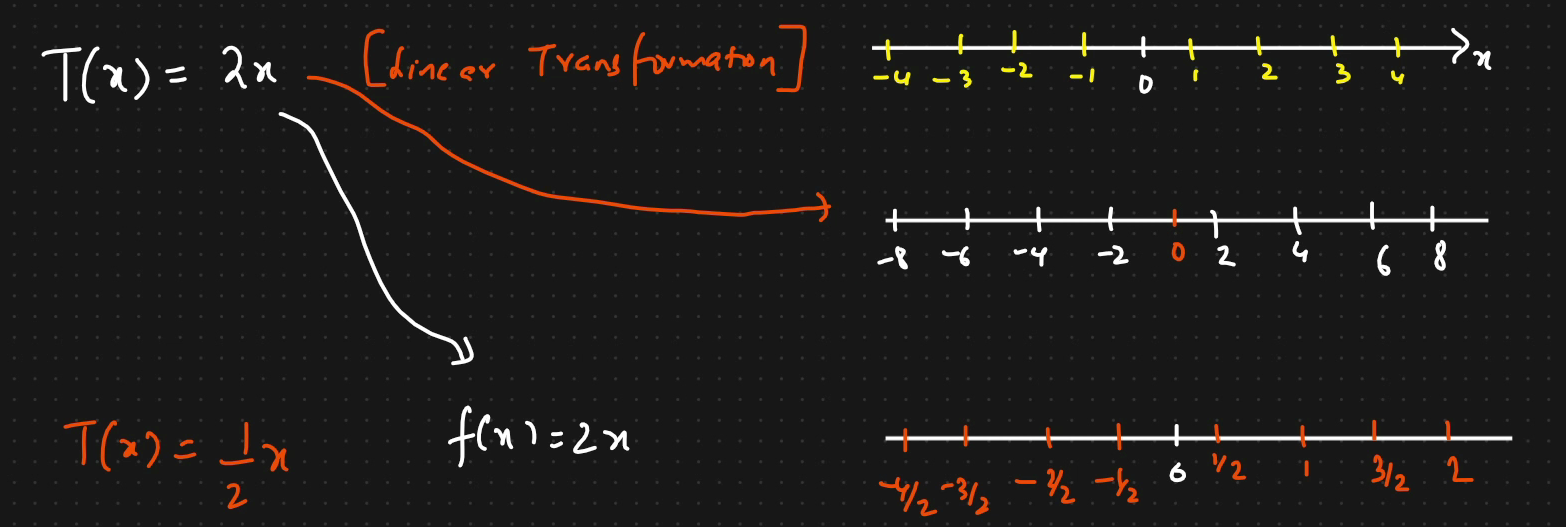 T(x) = 2x [Linear Transformation]
-4 -3 -2 -1 0 1 2 3 4 x
-8 -6 -4 -2 0 2 4 6 8
T(x) = 1/2 x
f(x) = 2x
-4/2 -3/2 -2/2 -1/2 0 1/2 1 3/2 2